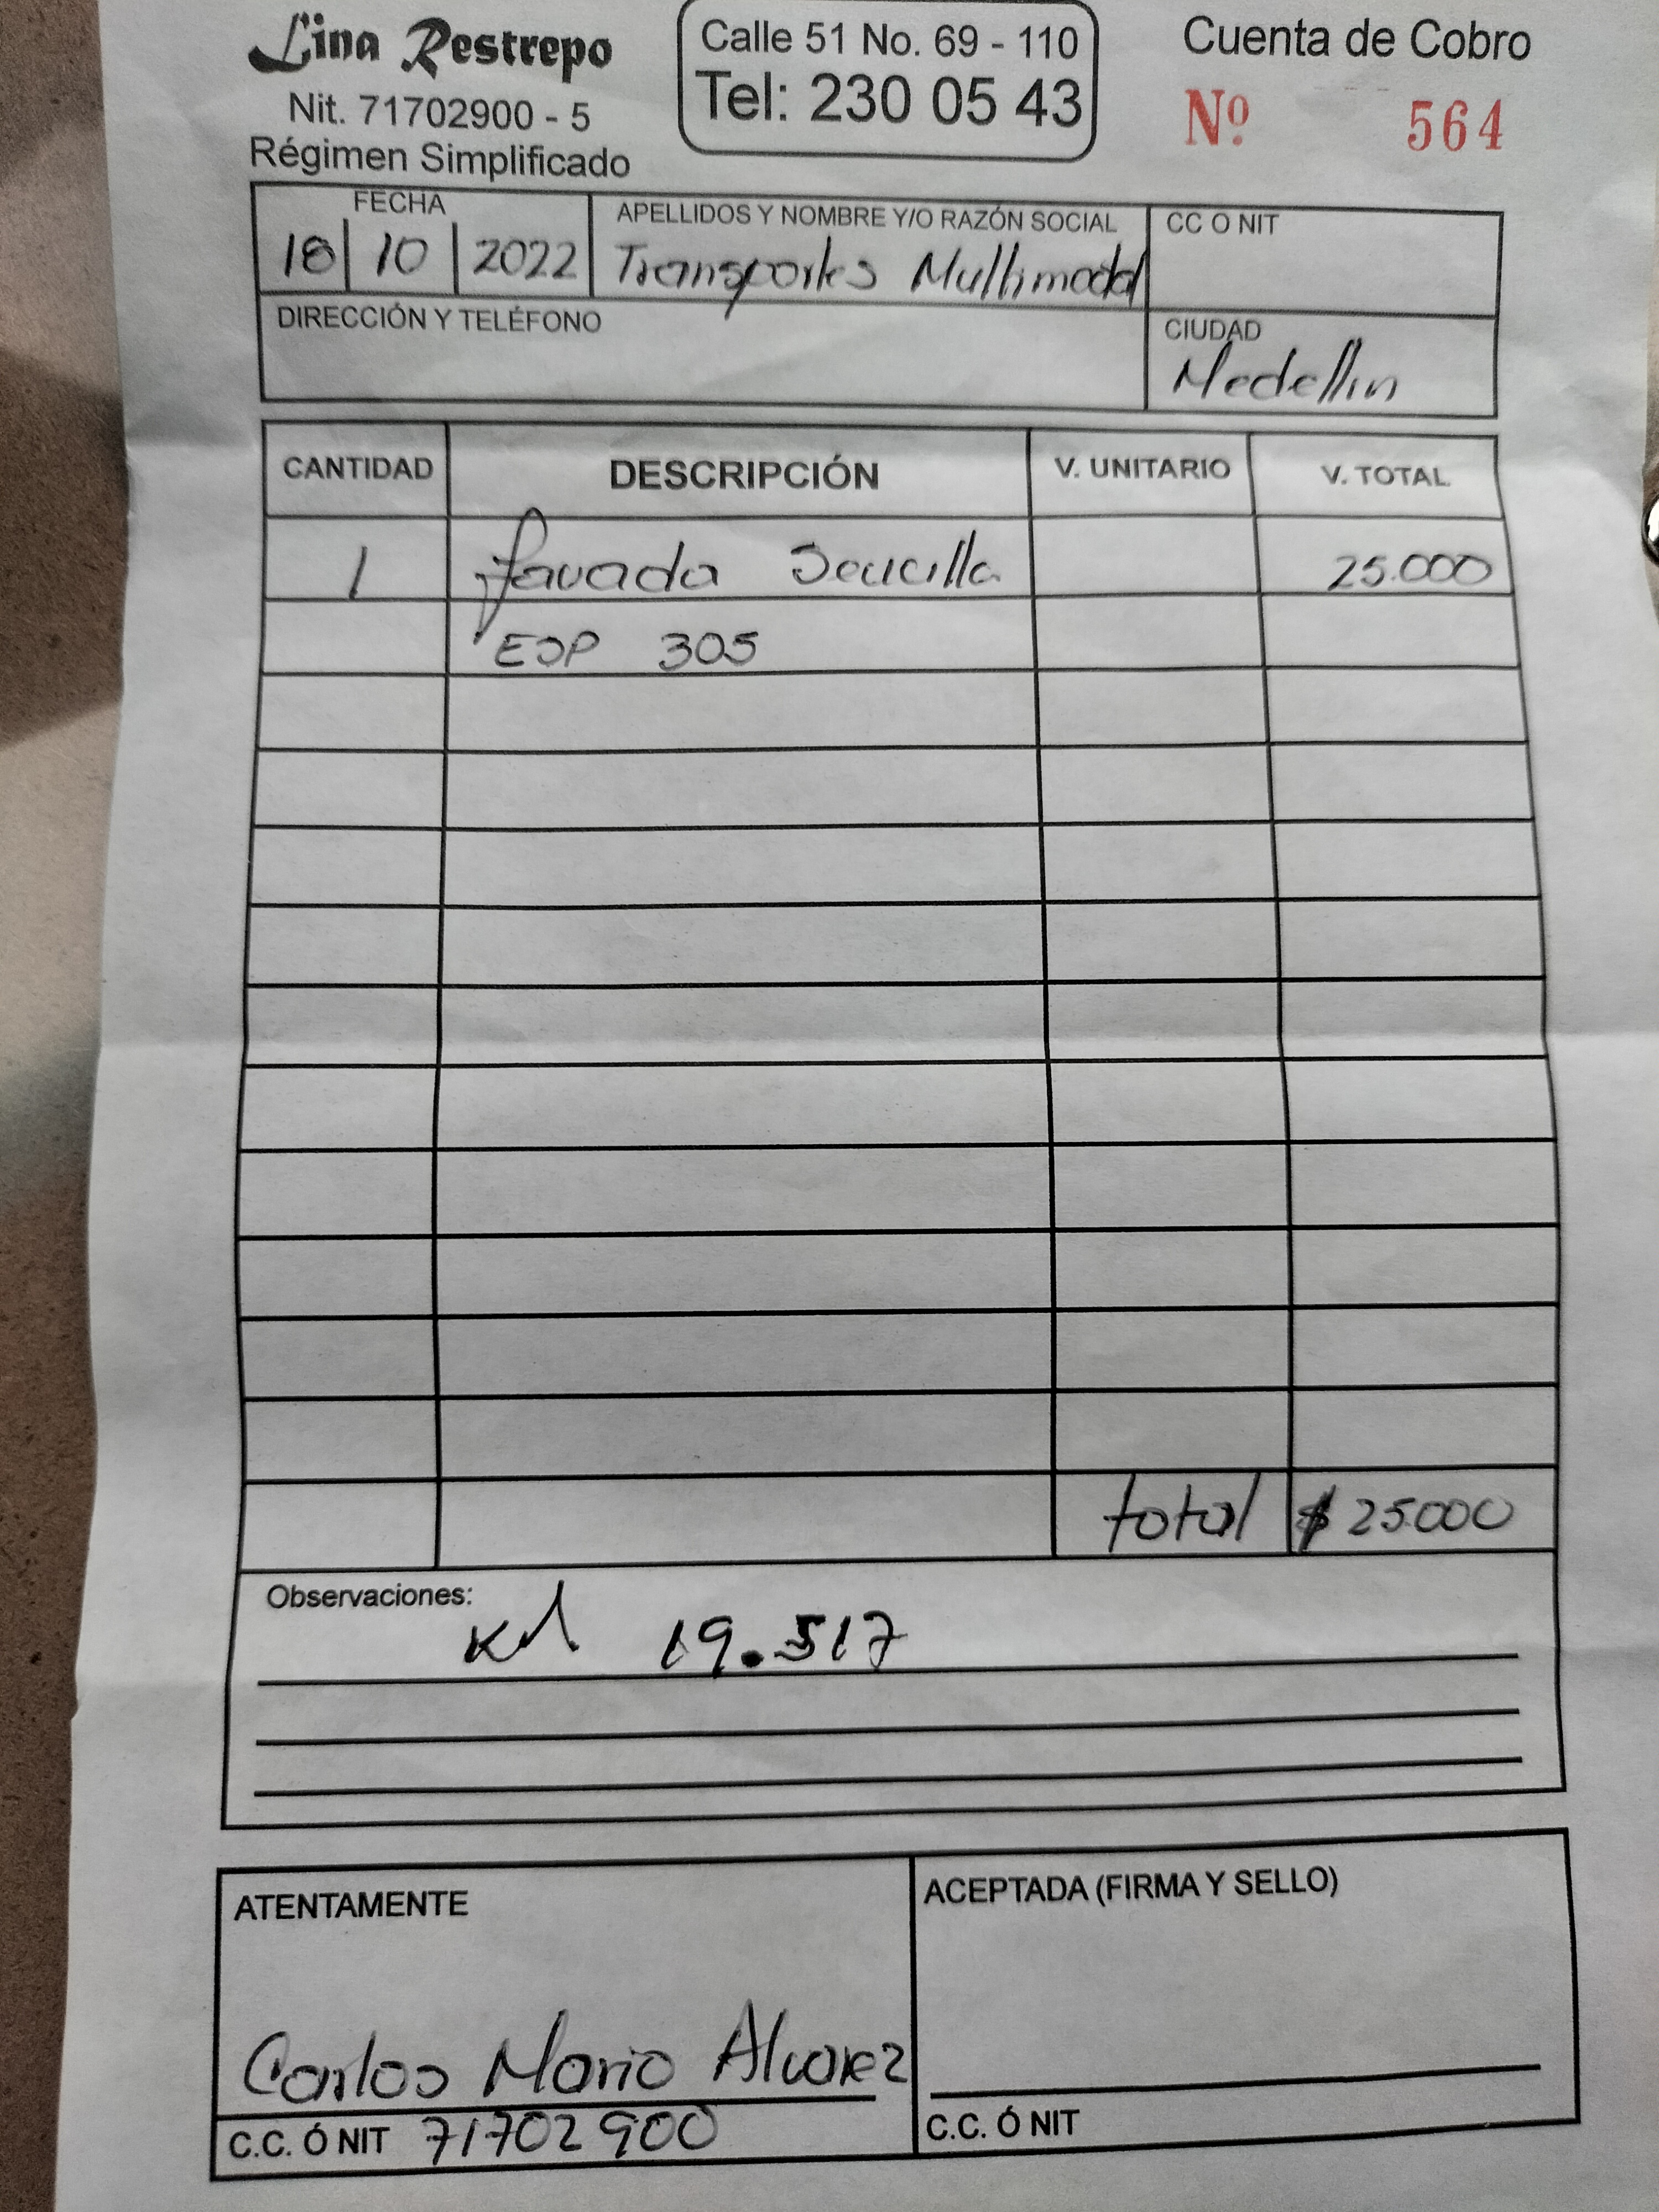 Lina Restrepo
Nit. 71702900 - 5
Régimen Simplificado
Calle 51 No. 69 - 110
Tel: 230 05 43
Cuenta de Cobro
Nº 564
FECHA
18 10 2022
APELLIDOS Y NOMBRE Y/O RAZÓN SOCIAL
Transportes Multimodal
CC O NIT
DIRECCIÓN Y TELÉFONO
CIUDAD
Medellin
CANTIDAD DESCRIPCIÓN V. UNITARIO V. TOTAL
1 Lavada Sencilla 25.000
EOP 305
total $ 25.000
Observaciones:
Kl 19.517
ATENTAMENTE
Carlos Mario Alvarez
C.C. Ó NIT 71702900
ACEPTADA (FIRMA Y SELLO)
C.C. Ó NIT